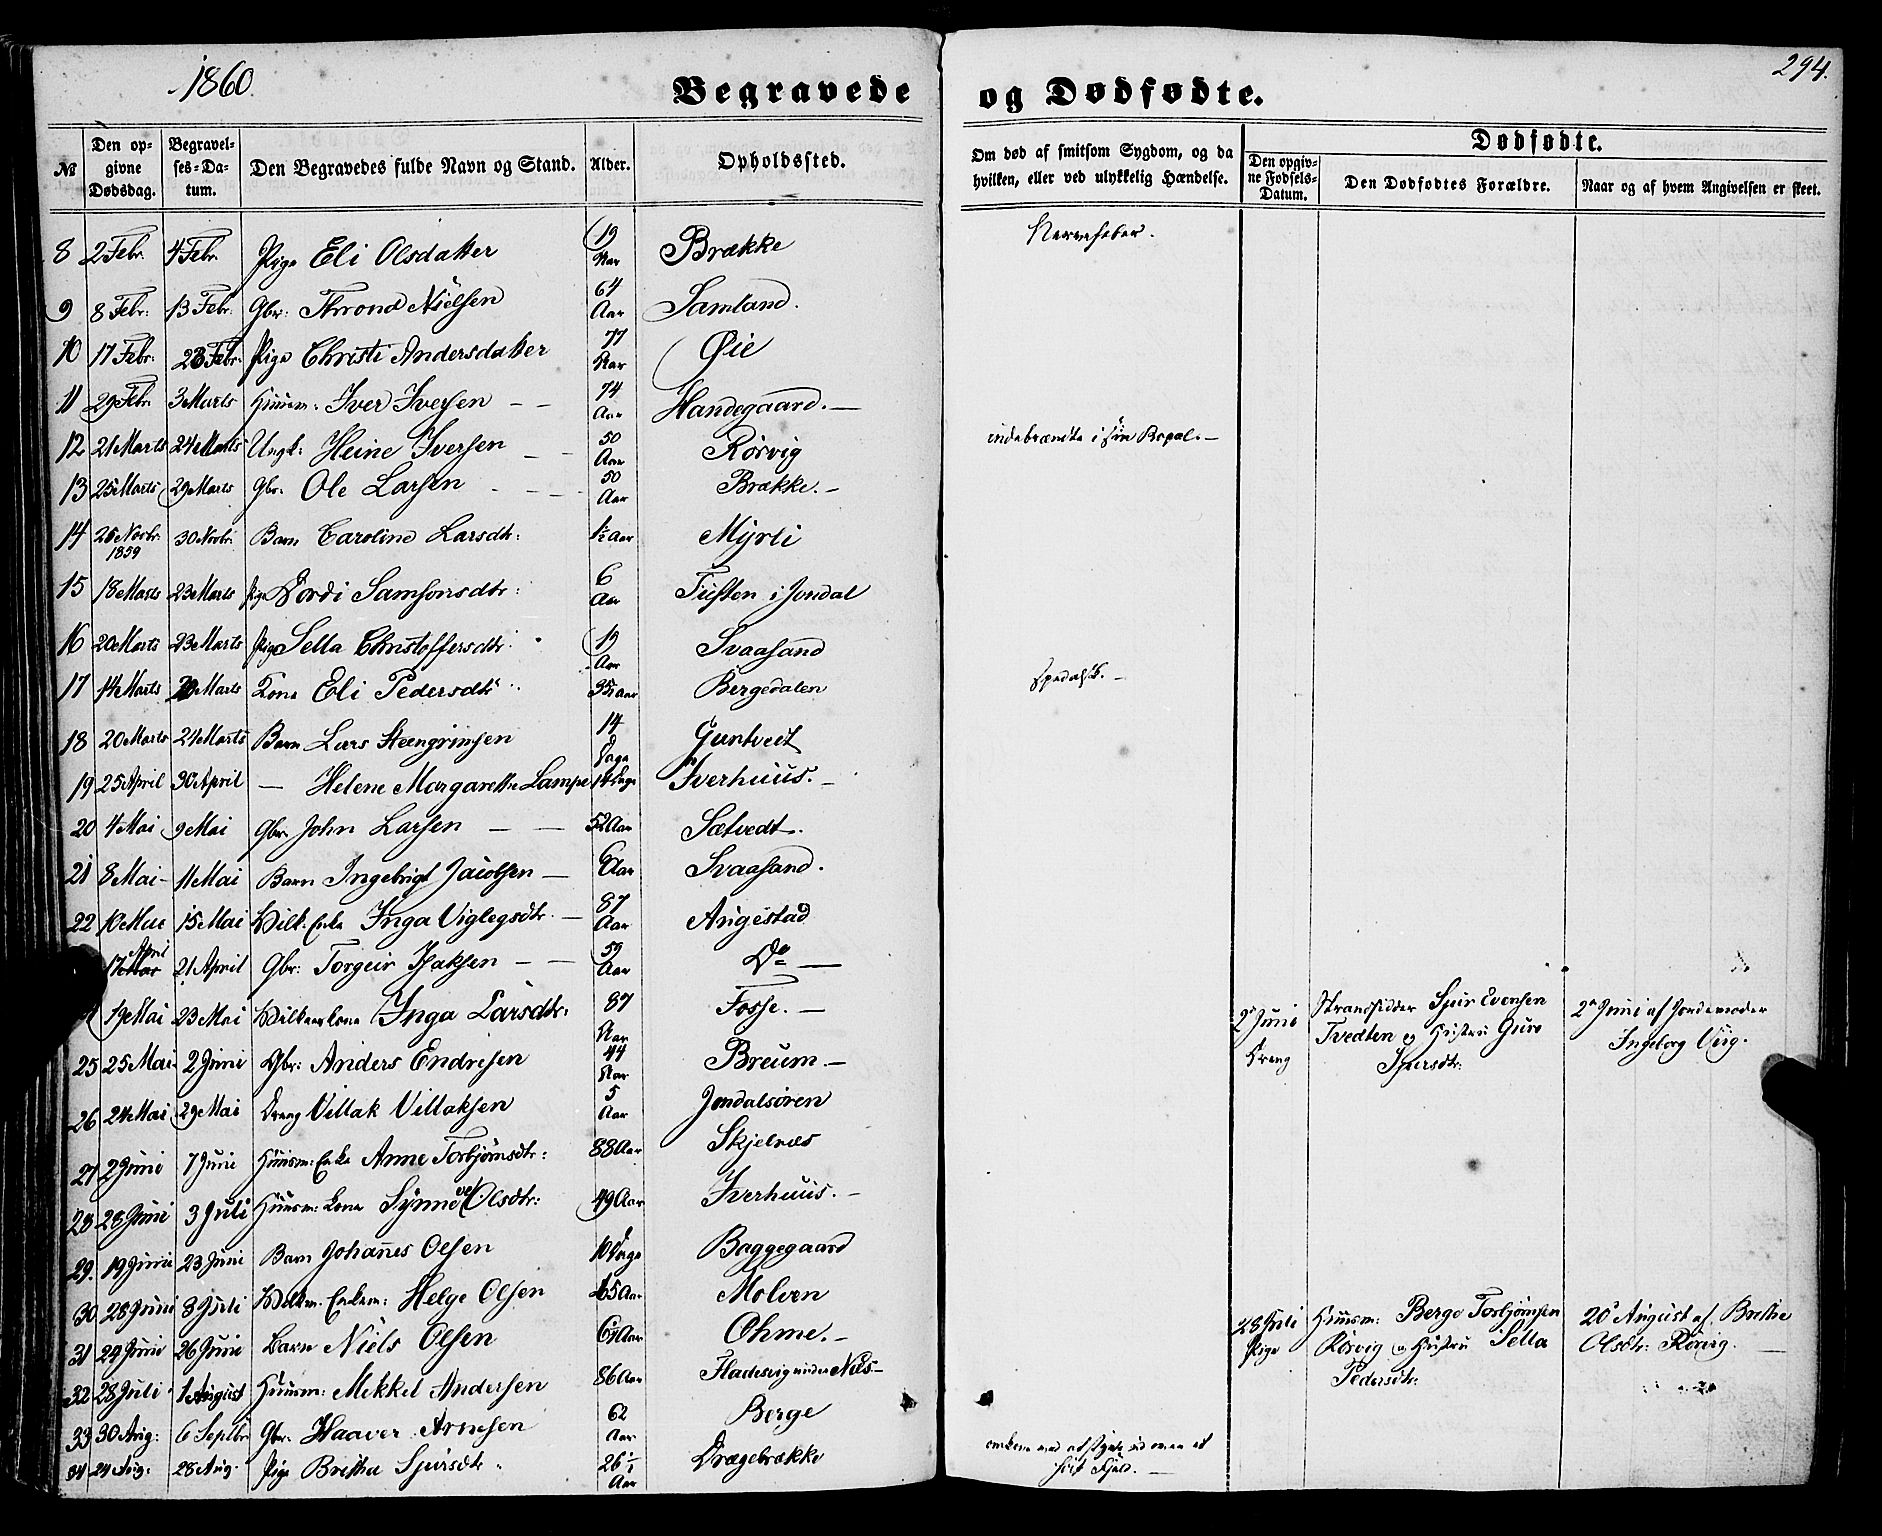 1860.
294.
Begravede og Dødfødte.
№
Den op-
givne
Dødsdag.
Begravel-
ses-Da-
tum.
Den Begravedes fulde Navn og Stand.
Alder.
Opholdssted.
Om død af smitsom Sygdom, og da
hvilken, eller ved ulykkelig Hændelse.
Dødfødte.
Den opgiv-
ne Fødsels-
Datum.
Den Dødfødtes Forældre.
Naar og af hvem Angivelsen er skeet.
8 2 Febr. 4 Febr. Pige Eli Olsdatter 19 Aar Brække Nervefeber.
9 8 Febr: 13 Febr. Gbr: Thrond Nielsen 64 Aar Samland.
10 17 Febr. Febr: Pige Christi Andersdatter 77 Aar Øie
11 29 Febr. 3 Marts Huusm: Iver Iversen — — 74 Aar Handegaard. —
12 21 Marts 24 Marts Ungk: Heine Iversen — — 50 Aar Rørvig indebrændte i sin Bopæl. —
13 25 Marts 29 Marts Gbr: Ole Larsen - - - - 50 Aar Brække. —
14 26 Novbr. 1859 30 Novbr. Barn Caroline Larsdtr: 1½ Aar Myrli
15 18 Marts 23 Marts Pige Dordi Samsonsdtr: 6 Aar Tuften i Jondal
16 20 Marts 23 Marts Pige Sella Christoffersdtr: 19 Aar Svaasand
17 14 Marts Marts Kone Eli Pedersdtr 35½ Aar Bergedalen spedalsk. —
18 20 Marts 21 Marts Barn Lars Steengrimsen 14 Dage Guntveit
19 25 April 30 April — Helene Margarethe Lampe 14 Dage Iverhuus. —
20 4 Mai 9 Mai Gbr. John Larsen — — 52 Aar Sætvedt.
21 8 Mai - 11 Mai Barn Ingebrigt Jacobsen — Aar Svaasand.
22 10 Mai 15 Mai Vilk. Enke Inga Viglegsdtr. — 87 Aar Augestad
17 April 21 April Gbr: Torgeir Isaksen — — 59 Aar Do —
19 Mai 23 Mai Inga Larsdtr: 87 Aar Fosse. —
2 Juni Dreng
Strandsidder Sjur Evensen
Tvedten og Hustru Guro
Sjursdtr:
2 Juni af Jordemoder
Ingeborg
25 25 Mai 2 Juni Gbr: Anders Endresen 44 Aar Breum. —
26 24 Mai 29 Mai Dreng Villak Villaksen 5 Aar Jondalsøren
27 2 Juni 7 Juni Huusm: Enke Anne Torbjørnsdtr: 88 Aar Skjelnæs
28 28 Juni 3 Juli Huusm: Kone Synneve Olsdtr: 49 Aar Iverhuus. —
29. 19 Juni 23 Juni Barn Johannes Olsen 10 Dage Baggegaard
30 28 Juni 8 Juli Enkem: Helge Olsen Aar Molven
31 24 Juni 26 Juni Barn Niels Olsen Aar Ohme. —
28 Juli Pige
Huusm: Berge Torbjørnsen
Rørvig og Hustru Sella
Pedersdtr:
20 August af Brithe
Olsdtr: Rørvig. —
32 28 Juli 1 August Huusm: Mikkel Andersen 86 Aar Fladesvig under Næs —
33 30 Aug: 6 Septbr Gbr. Haaver Arnesen 62 Aar Berge
34 24 Aug: 28 Aug. Pige Britha Sjursdtr. 26 Aar Drægebrække